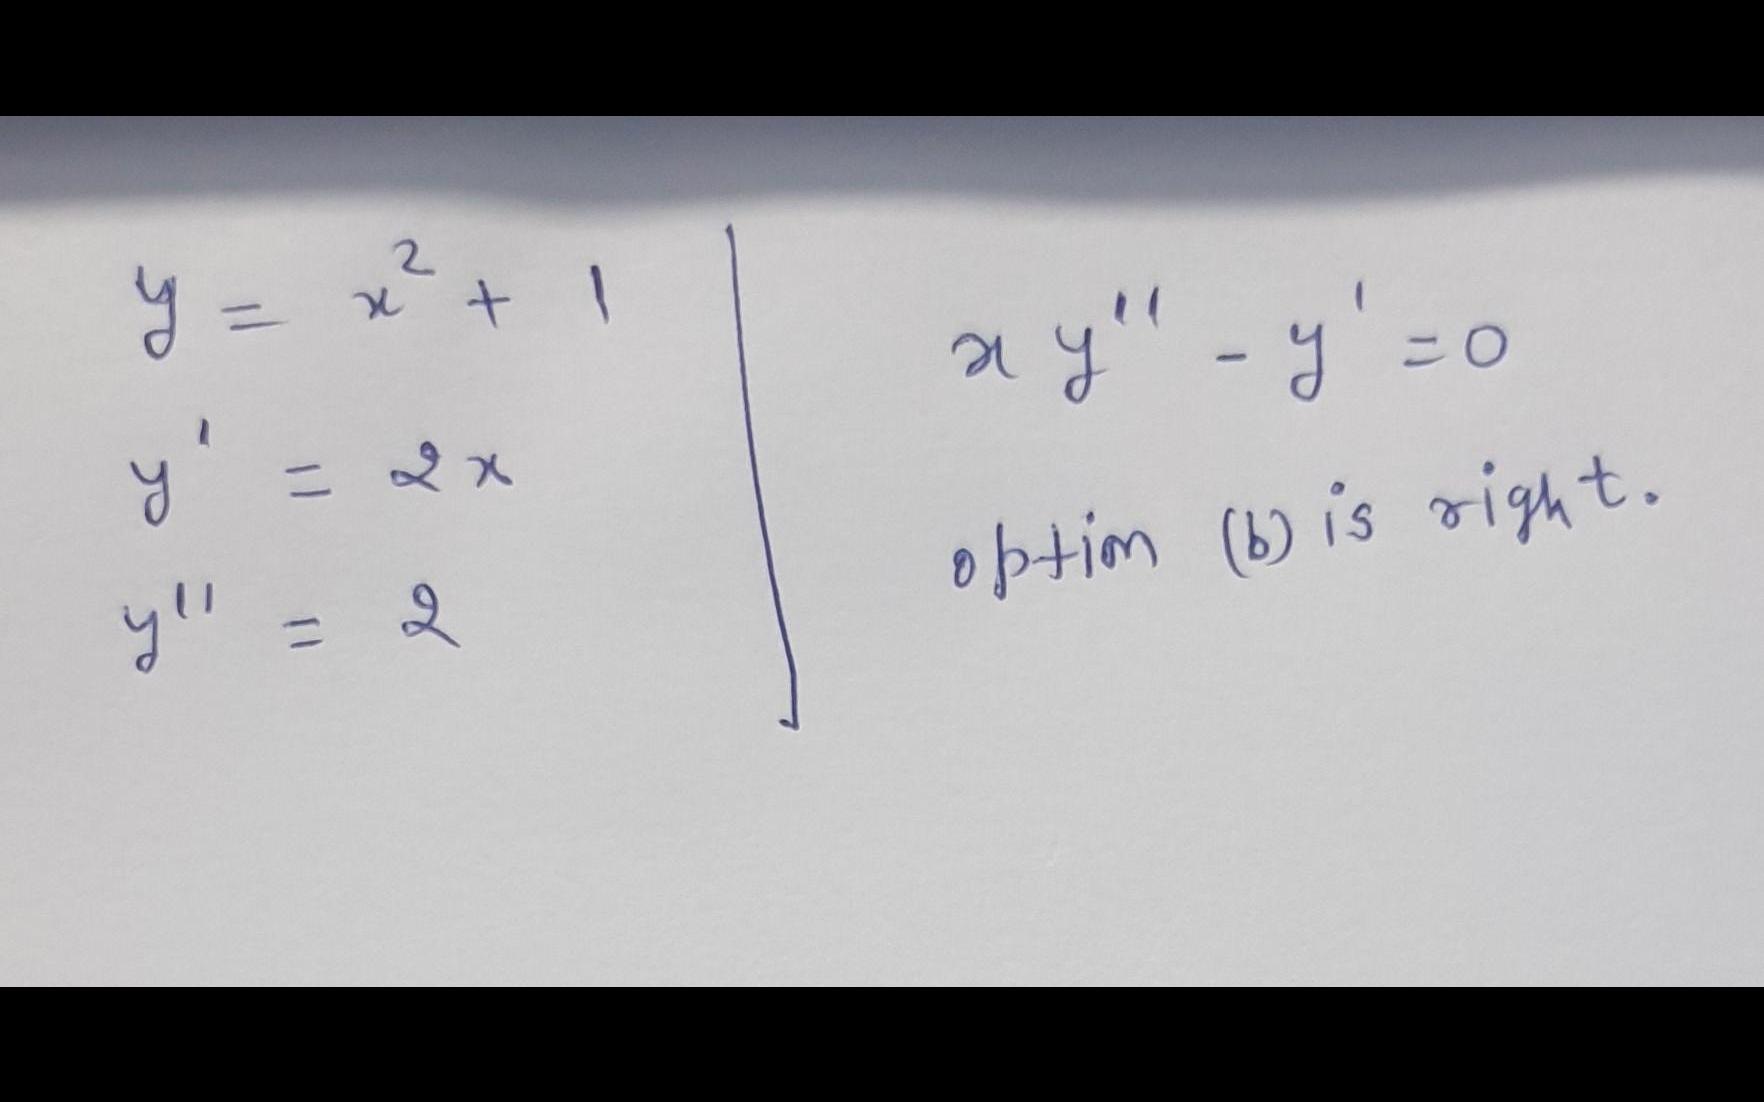 y = x² + 1
y' = 2x
y'' = 2
x y'' - y' = 0
option (b) is right.